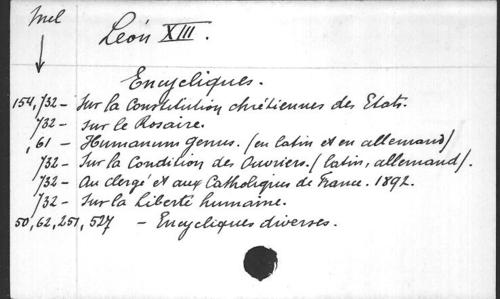 Mel
Léon XIII.
Encycliques.
154,732 - Sur la Constitution chrétiennes des Etats.
732 - Sur le Rosaire.
,61 - Humanum Genus. (en latin et en allemand)
732 - Sur la Condition des Ouvriers. (latin, allemand).
732 - Au clergé et aux Catholiques de France. 1892.
732 - Sur la Liberté humaine.
50,62,251,527 - Encycliques diverses.